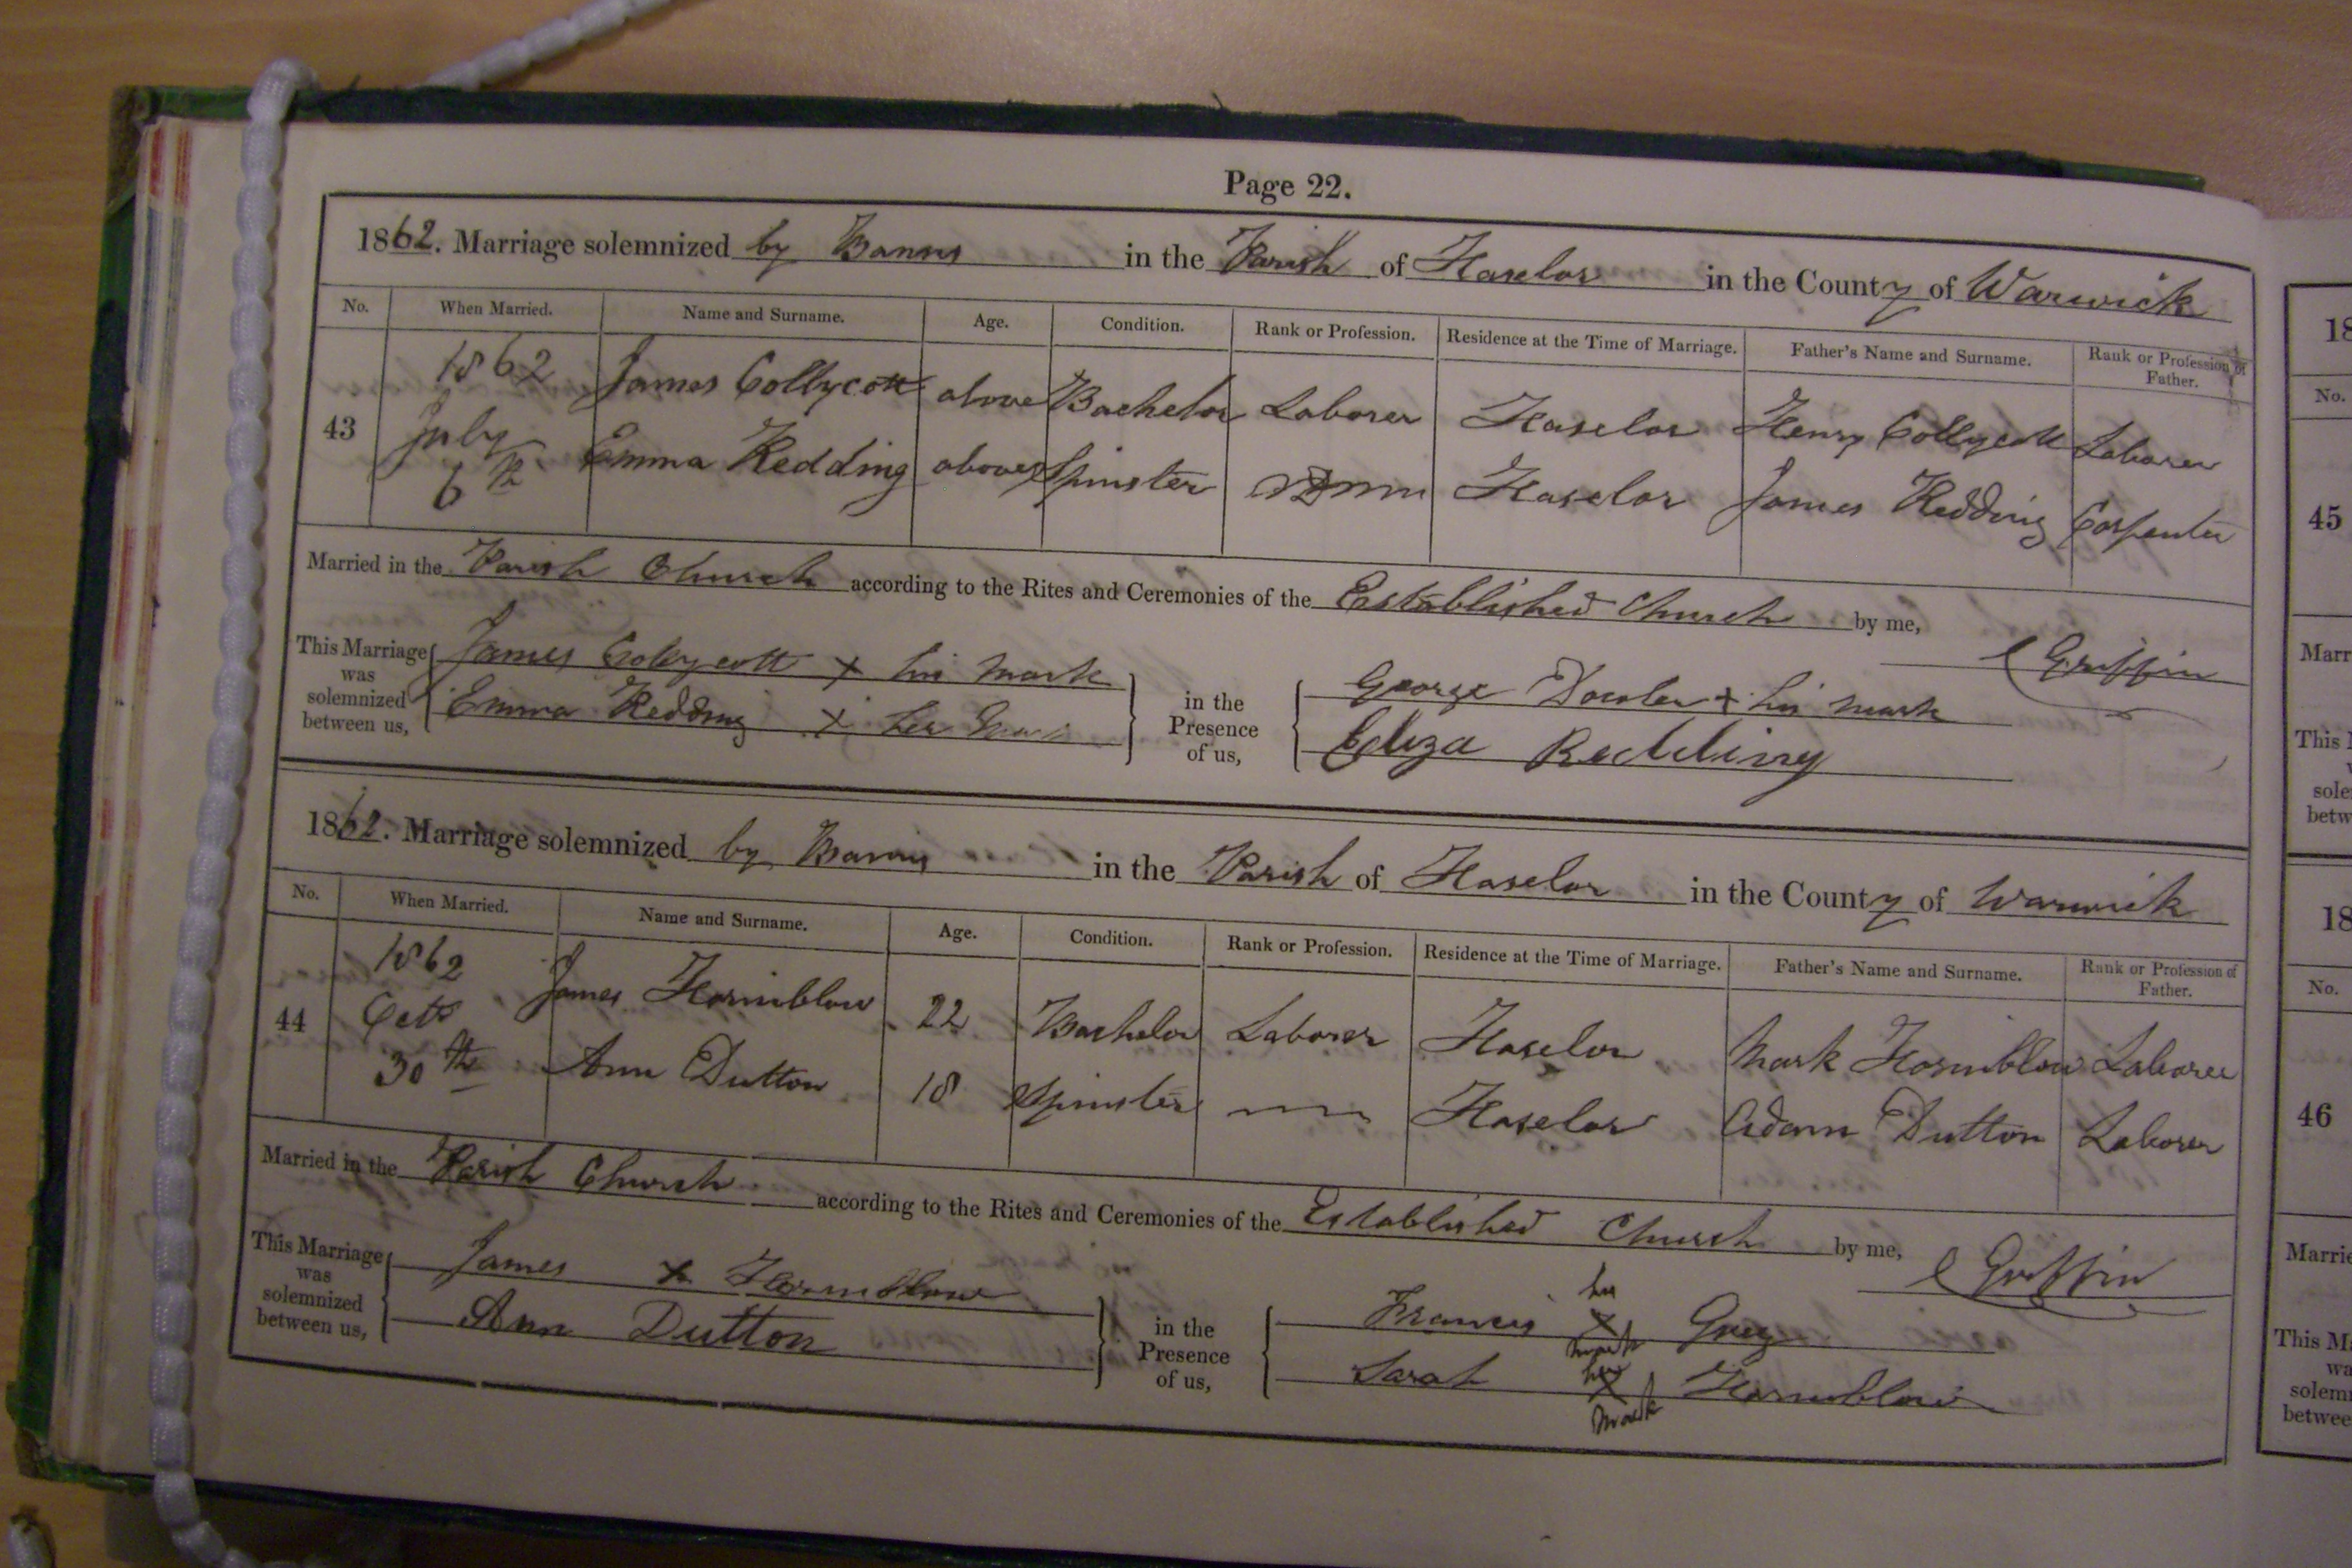 Page 22.
1862. Marriage solemnized by Banns in the Parish of Haselor in the County of Warwick
No. When Married. Name and Surname. Age. Condition. Rank or Profession. Residence at the Time of Marriage. Father's Name and Surname. Rank or Profession of Father.
43 1862 July 6th
James Collycott above Bachelor Laborer Haselor Henry Collycott Laborer
Emma Redding above Spinster Haselor James Redding Carpenter
Married in the Parish Church according to the Rites and Ceremonies of the Established Church by me,
C Griffin
This Marriage was solemnized between us,
James Collycott x his mark
Emma Redding x her mark
in the Presence of us,
George x his mark
Eliza Redding
1862. Marriage solemnized by Banns in the Parish of Haselor in the County of Warwick
No. When Married. Name and Surname. Age. Condition. Rank or Profession. Residence at the Time of Marriage. Father's Name and Surname. Rank or Profession of Father.
44 1862 Octr 30th
James Hornblow 22 Bachelor Laborer Haselor Mark Hornblow Laborer
Ann Dutton 18 Spinster Haselor Adam Dutton Laborer
Married in the Parish Church according to the Rites and Ceremonies of the Established Church by me,
C Griffin
This Marriage was solemnized between us,
James x Hornblow
Ann Dutton
in the Presence of us,
Francis his x mark
Sarah her x mark Hornblow
18
No.
45
Marr
This
sole
betw
18
No.
46
Marrie
This Ma
wa
solem
betwee